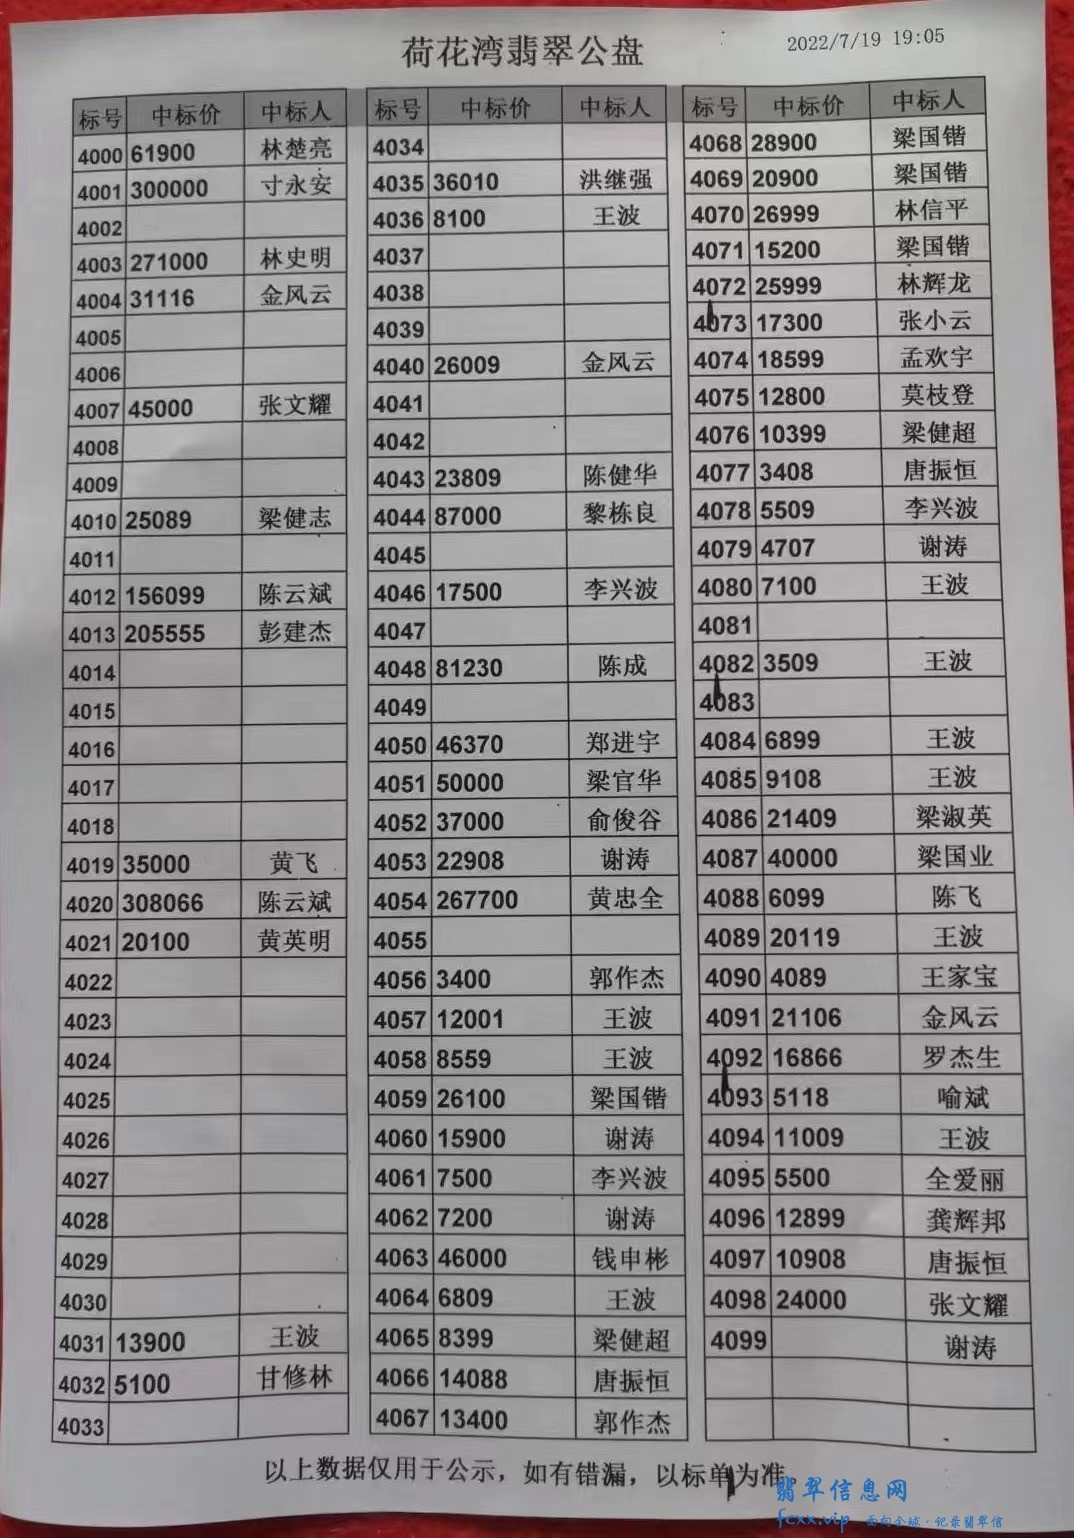 荷花湾翡翠公盘
2022/7/19 19:05
标号 中标价 中标人 标号 中标价 中标人 标号 中标价 中标人
4000 61900 林楚亮 4034 4068 28900 梁国锴
4001 300000 寸永安 4035 36010 洪继强 4069 20900 梁国锴
4002 4036 8100 王波 4070 26999 林信平
4003 271000 林史明 4037 4071 15200 梁国锴
4004 31116 金风云 4038 4072 25999 林辉龙
4005 4039 4073 17300 张小云
4006 4040 26009 金风云 4074 18599 孟欢宇
4007 45000 张文耀 4041 4075 12800 莫枝登
4008 4042 4076 10399 梁健超
4009 4043 23809 陈健华 4077 3408 唐振恒
4010 25089 梁健志 4044 87000 黎栋良 4078 5509 李兴波
4011 4045 4079 4707 谢涛
4012 156099 陈云斌 4046 17500 李兴波 4080 7100 王波
4013 205555 彭建杰 4047 4081
4014 4048 81230 陈成 4082 3509 王波
4015 4049 4083
4016 4050 46370 郑进宇 4084 6899 王波
4017 4051 50000 梁官华 4085 9108 王波
4018 4052 37000 俞俊谷 4086 21409 梁淑英
4019 35000 黄飞 4053 22908 谢涛 4087 40000 梁国业
4020 308066 陈云斌 4054 267700 黄忠全 4088 6099 陈飞
4021 20100 黄英明 4055 4089 20119 王波
4022 4056 3400 郭作杰 4090 4089 王家宝
4023 4057 12001 王波 4091 21106 金风云
4024 4058 8559 王波 4092 16866 罗杰生
4025 4059 26100 梁国锴 4093 5118 喻斌
4026 4060 15900 谢涛 4094 11009 王波
4027 4061 7500 李兴波 4095 5500 全爱丽
4028 4062 7200 谢涛 4096 12899 龚辉邦
4029 4063 46000 钱申彬 4097 10908 唐振恒
4030 4064 6809 王波 4098 24000 张文耀
4031 13900 王波 4065 8399 梁健超 4099 谢涛
4032 5100 甘修林 4066 14088 唐振恒
4033 4067 13400 郭作杰
以上数据仅用于公示，如有错漏，以标单为准
翡翠信息网
fcxx.vip 面向全球·记录翡翠信